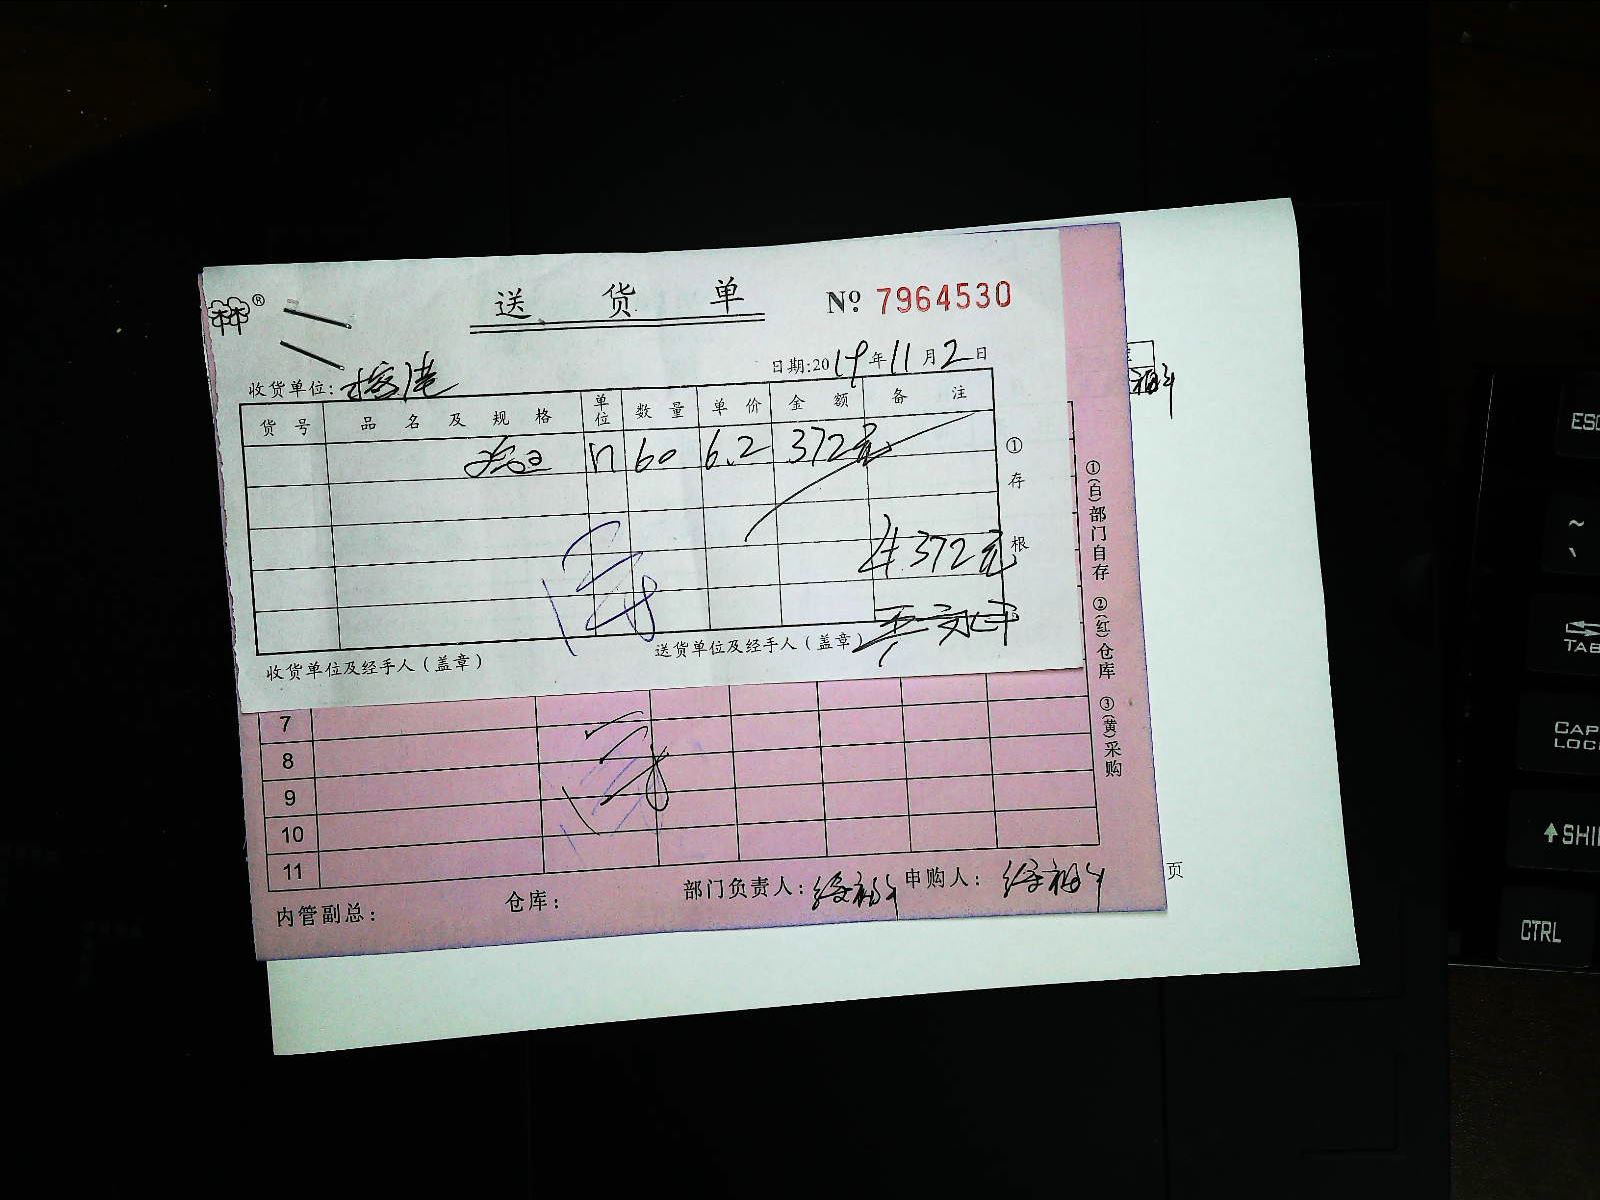 林®
送 货 单
№ 7964530
日期:2019年11月2日
收货单位:
货号 品名及规格 单位 数量 单价 金额 备注
60 6.2 372元
372元
①存根
收货单位及经手人（盖章） 送货单位及经手人（盖章）
7
8
9
10
11
内管副总： 仓库： 部门负责人： 申购人：
①(白)部门自存 ②(红)仓库 ③(黄)采购
页
ESC
~
`
TAB
CAPS
LOCK
SHI
CTRL